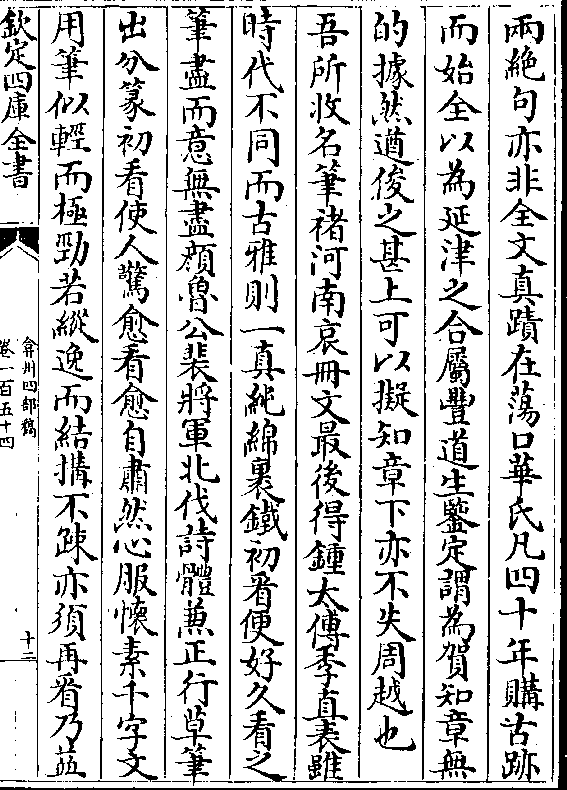 兩絶句亦非全文真蹟在蕩口華氏凡四十年購古跡
而始全以為延津之合屬豐道生鑒定謂為賀知章無
的據然遒俊之甚上可以擬知章下亦不失周越也
吾所收名筆禇河南哀冊文最後得鍾太傅季直表雖
時代不同而古雅則一真純綿裹鐵初看便好久看之
筆盡而意無盡顔魯公裴將軍北伐詩體兼正行草筆
出分篆初看使人驚愈看愈自肅然心服懷素千字文
用筆似輕而極勁若縱逸而結搆不踈亦須再看乃莁
欽定四庫全書
弇州四部稿
卷一百五十四
十二